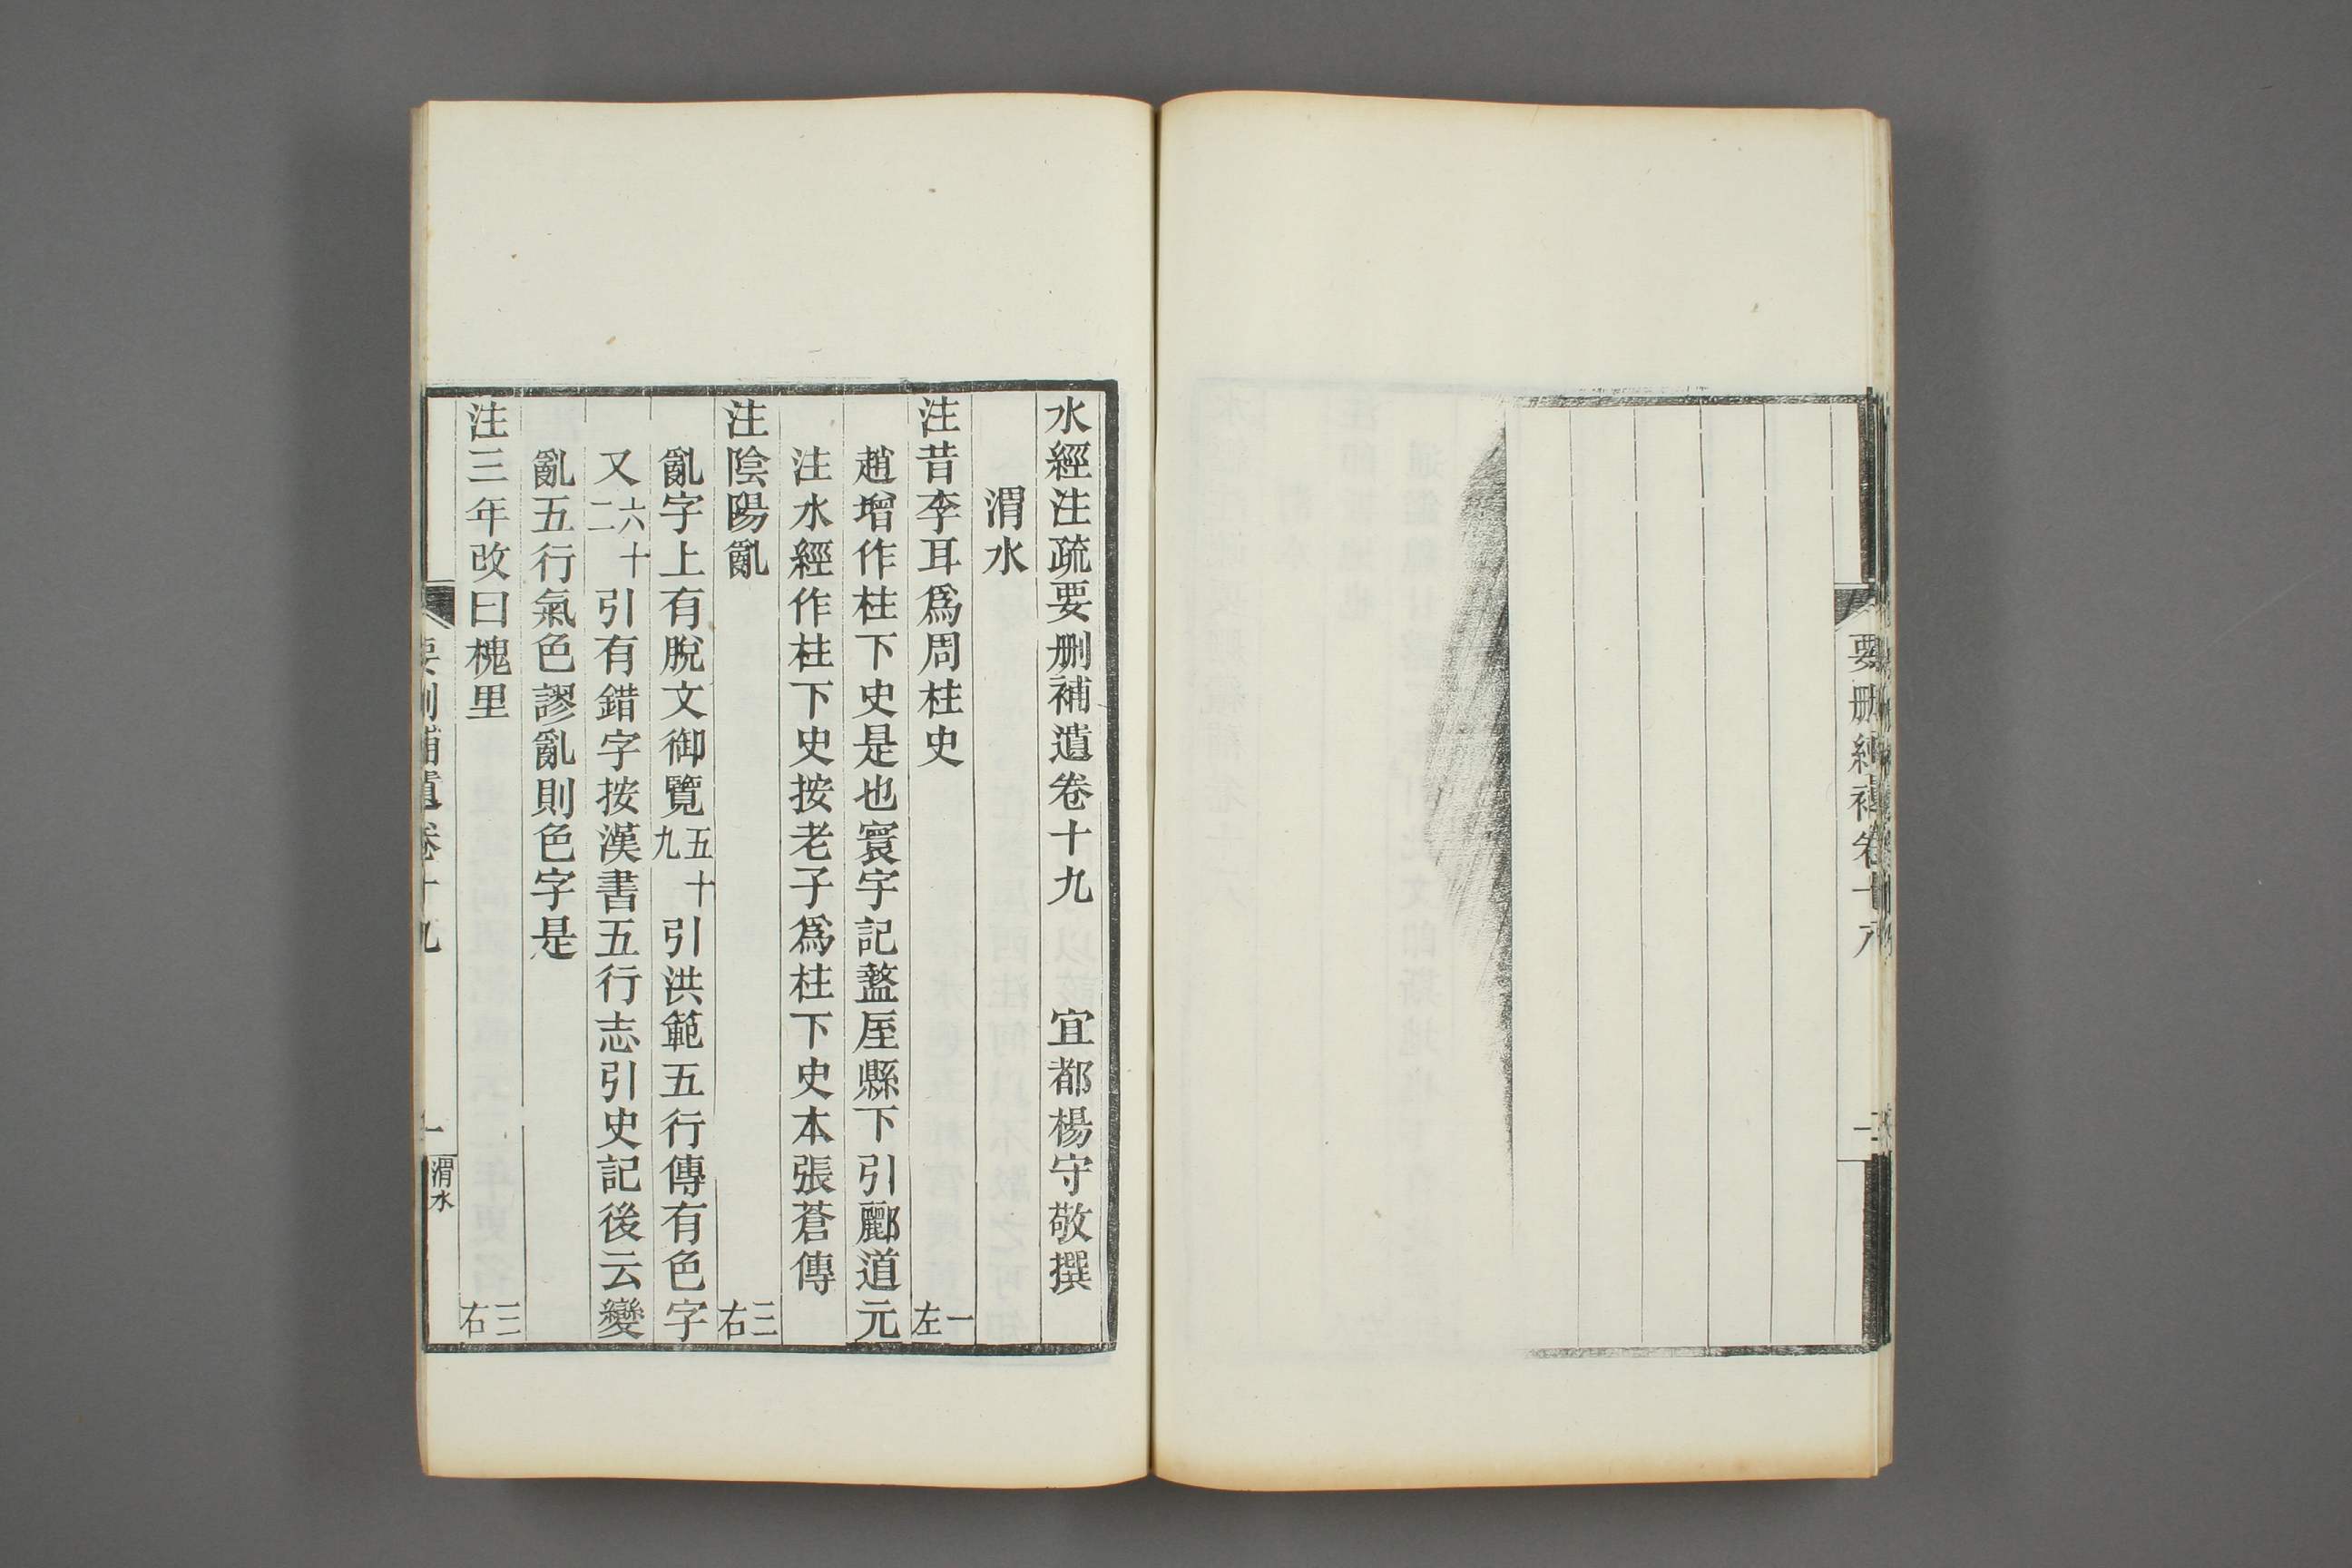 要刪續補卷十八
二
水經注疏要刪補遺卷十九　宜都楊守敬撰
渭水
注昔李耳爲周柱史　一左
趙增作柱下史是也寰宇記盩厔縣下引酈道元
注水經作柱下史按老子爲柱下史本張蒼傳
注陰陽亂　三右
亂字上有脫文御覽五十九引洪範五行傳有色字
又六十二引有錯字按漢書五行志引史記後云變
亂五行氣色謬亂則色字是
注三年改曰槐里　三右
要刪補遺卷十九
一
渭水